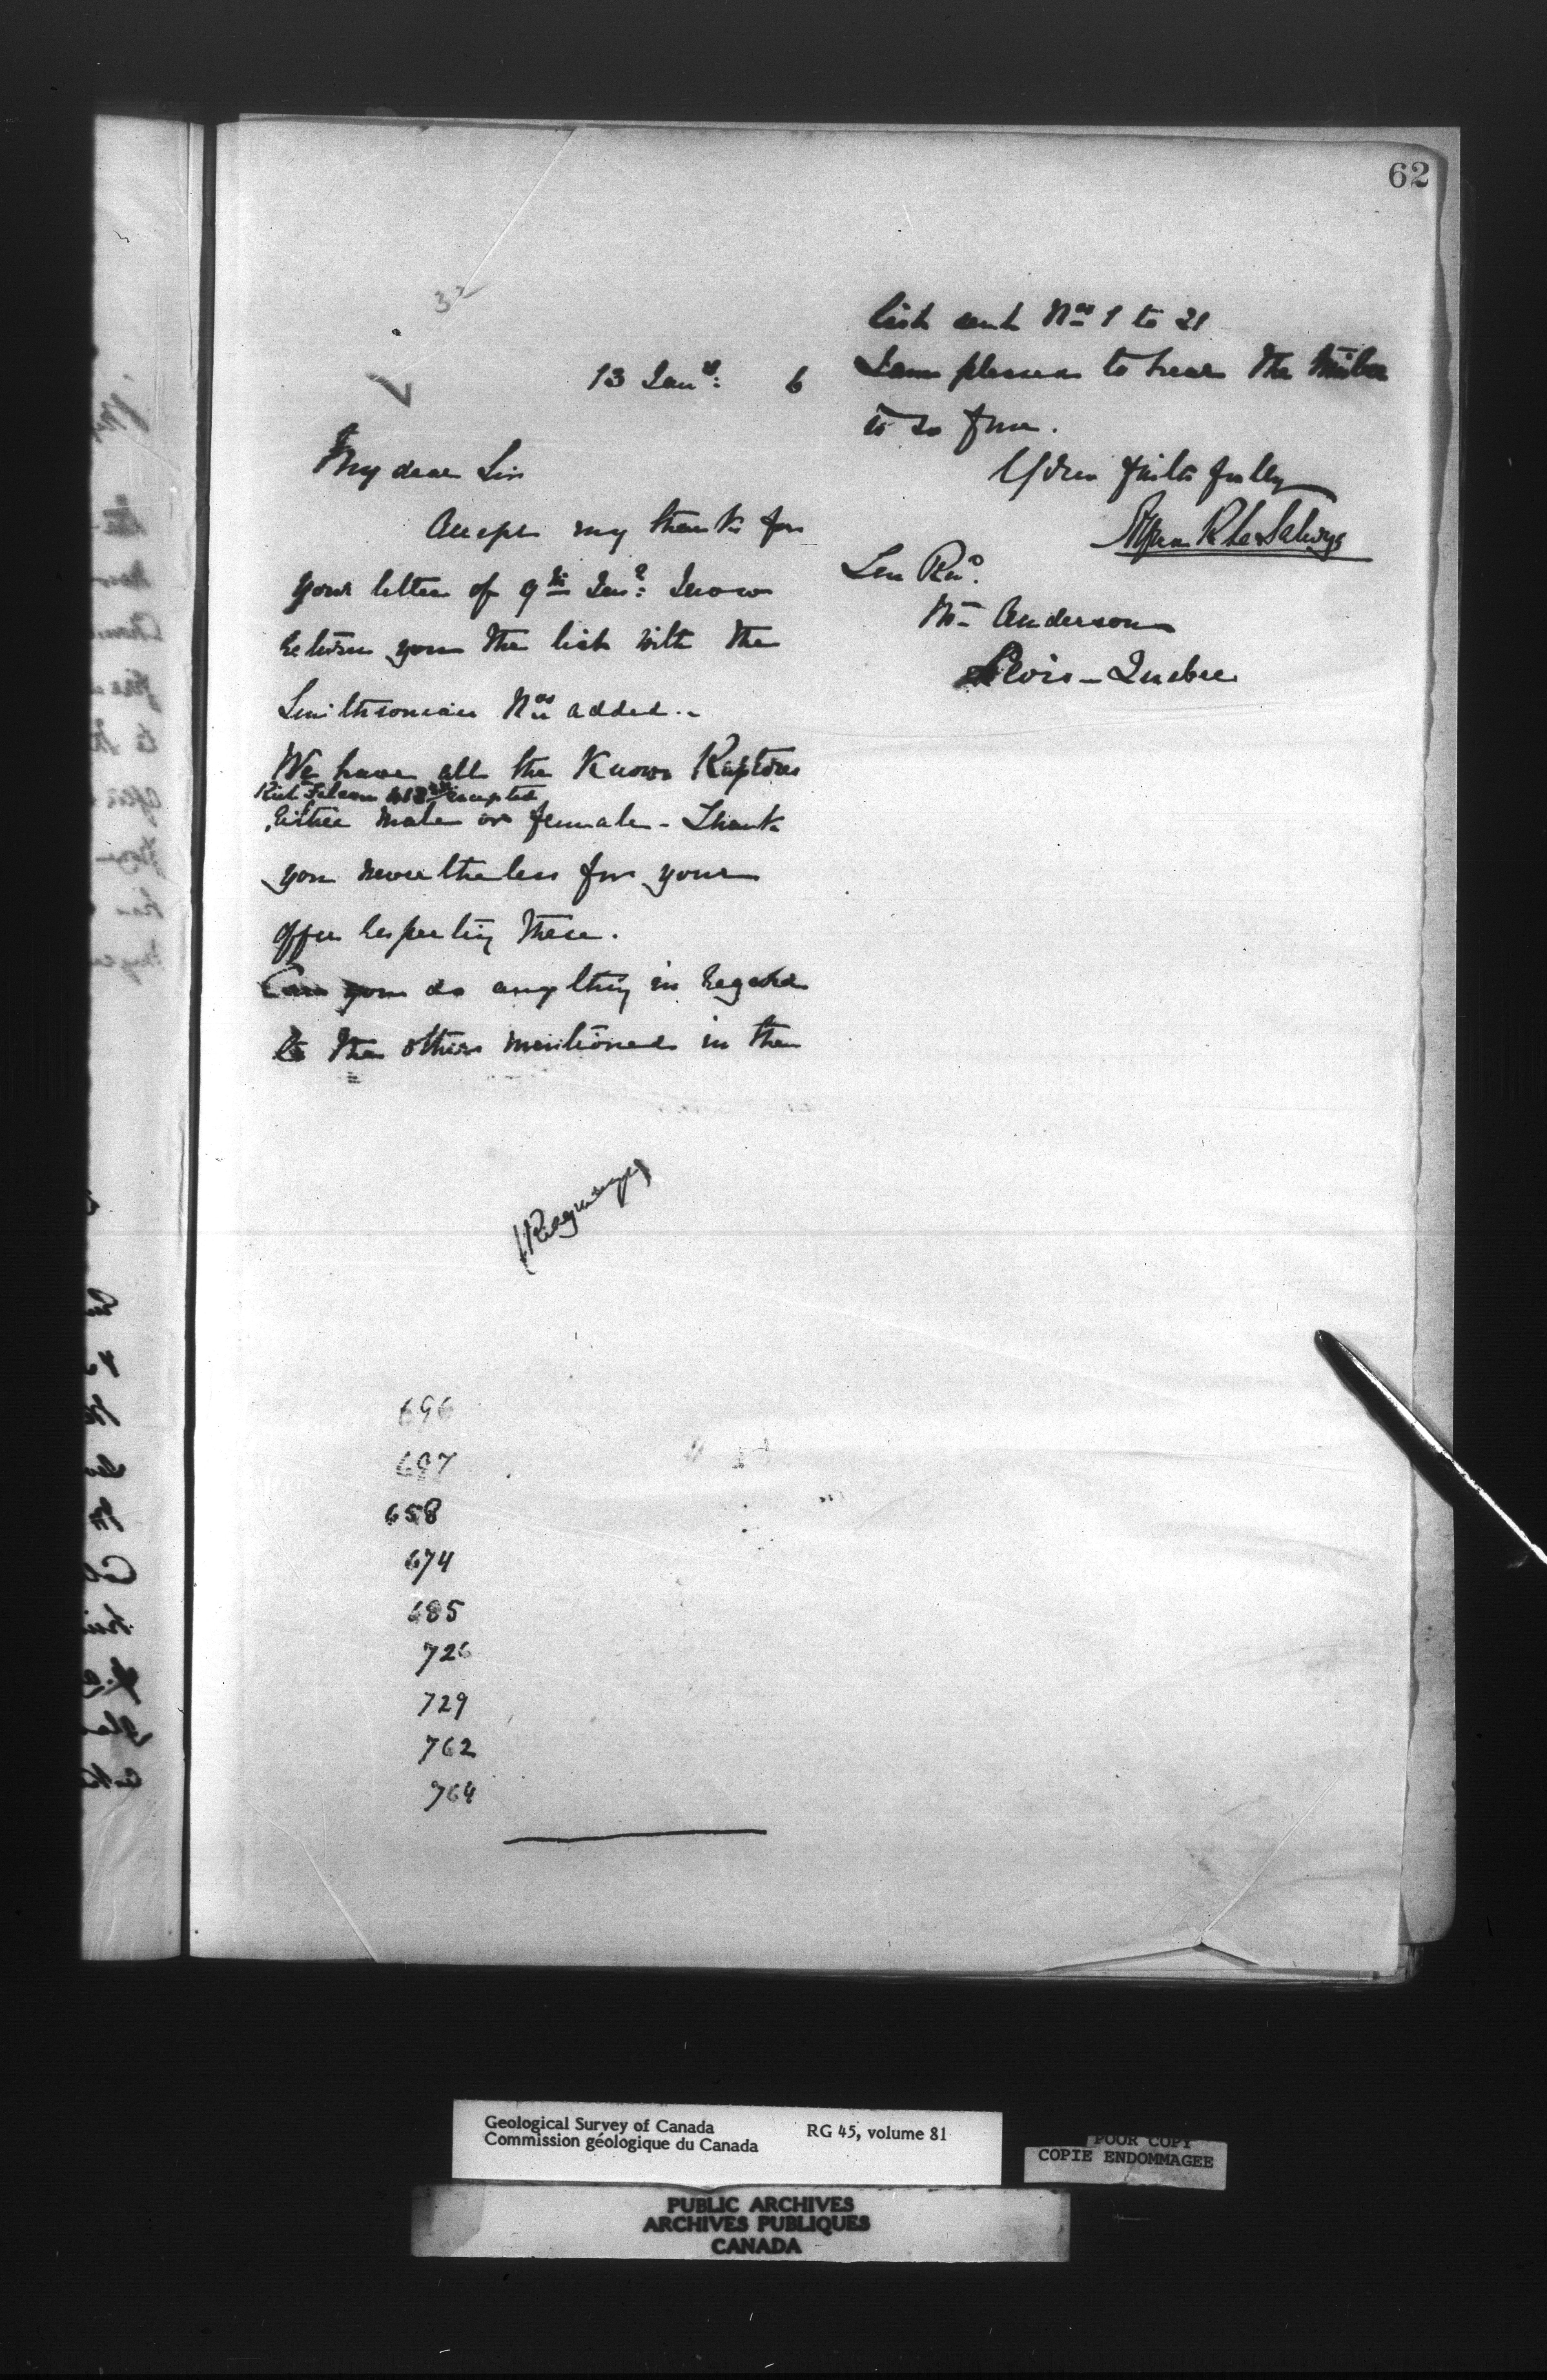 62
13 Jany: 6
My dear Sir
Accept my thanks for
your letter of 9th Jany: I now
return you the list with the
Smithsonian Nos added.-
We have all the Known Raptores
excepted
either male or female - Thank
you never the less for your
offer respecting these.
Can you do anything in regard
to the others mentioned in the
list sent Nos 1 to 21
I am pleased to hear the
is so fine.
Yours faithfully
Alfred R C Selwyn
Wm Anderson
Levis - Quebec
696
697
658
674
685
726
729
762
764
Geological Survey of Canada
Commission géologique du Canada
RG 45, volume 81
POOR COPY
COPIE ENDOMMAGEE
PUBLIC ARCHIVES
ARCHIVES PUBLIQUES
CANADA